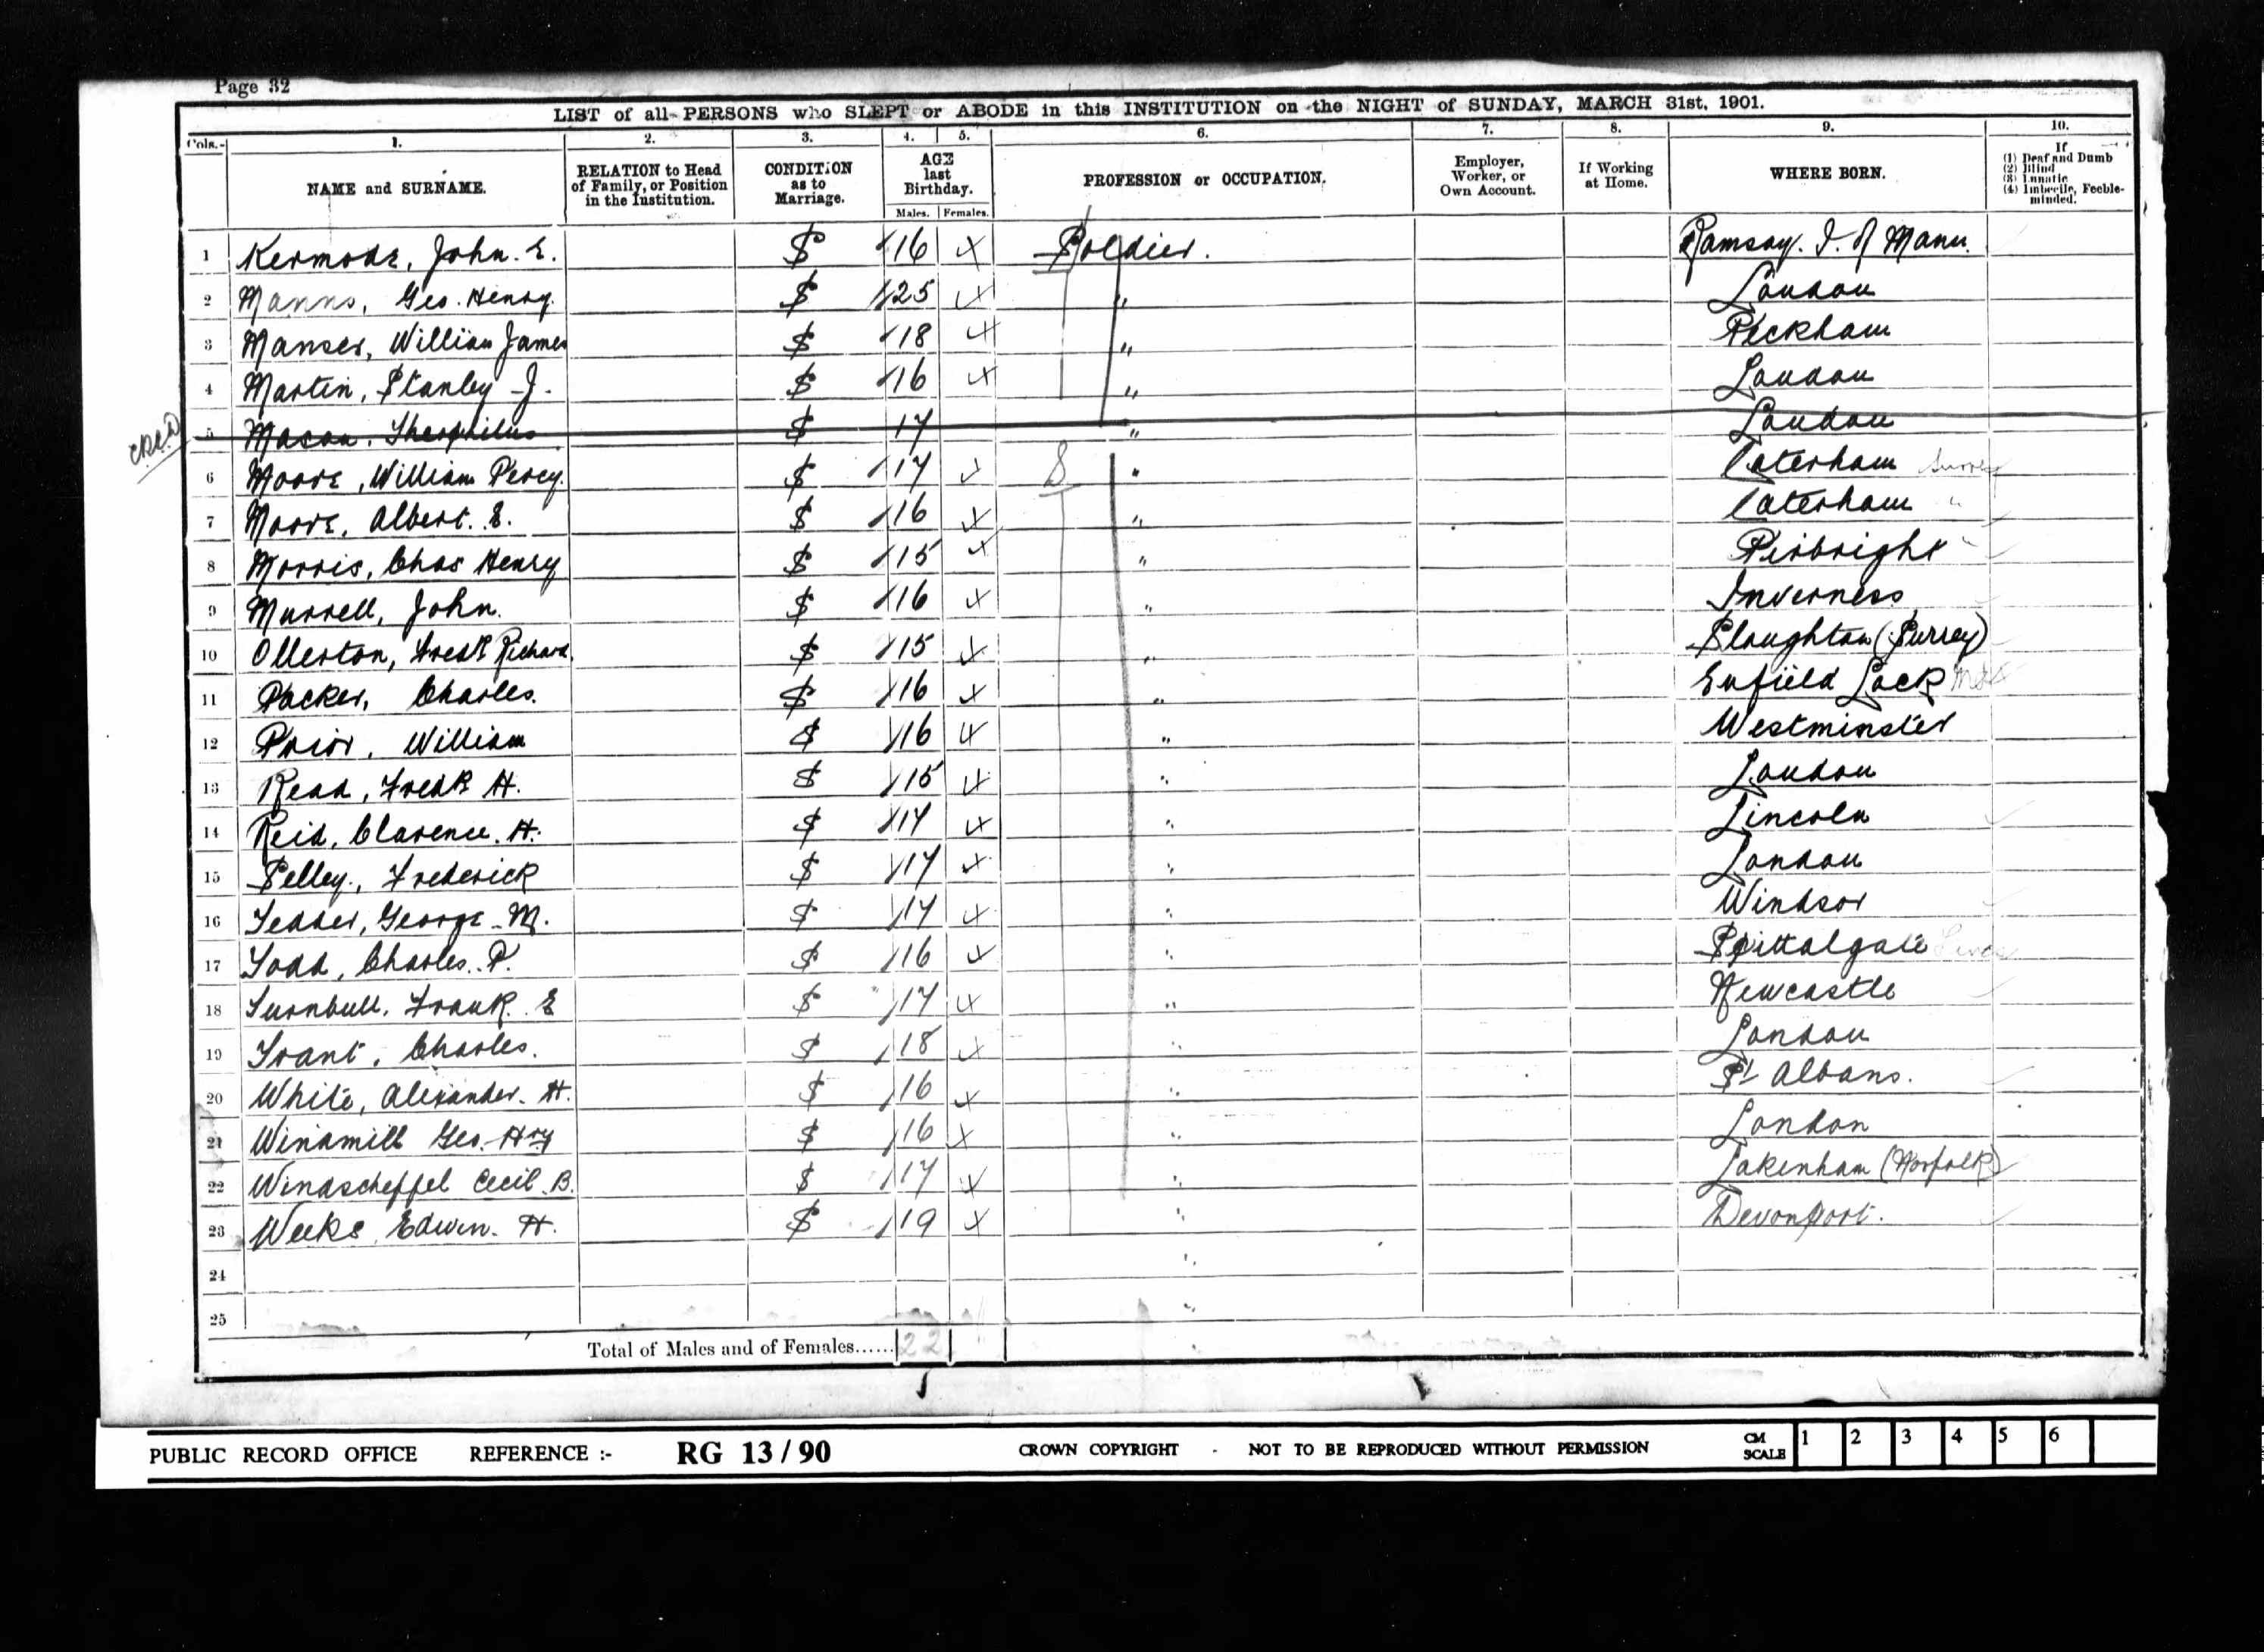 Page 32
LIST of all PERSONS who SLEPT or ABODE in this INSTITUTION on the NIGHT of SUNDAY, MARCH 31st, 1901.
Cols.- 1. 2. 3. 4. 5. 6. 7. 8. 9. 10.
NAME and SURNAME. RELATION to Head of Family, or Position in the Institution. CONDITION as to Marriage. AGE last Birthday. Males. Females. PROFESSION or OCCUPATION. Employer, Worker, or Own Account. If Working at Home. WHERE BORN. If (1) Deaf and Dumb (2) Blind (3) Lunatic (4) Imbecile, Feeble-minded.
1 Kermode, John. E. S 16 Soldier. Ramsay. I. of Mann.
2 Manns, Geo. Henry. S 25 " London
3 Manser, William James S 18 " Peckham
4 Martin, Stanley J. S 16 " London
5 Macon, Theophilus S 17 " London
6 Moore, William Percy. S 17 " Caterham Surrey
7 Moore, Albert. E. S 16 " Caterham "
8 Morris, Chas Henry S 15 " Pirbright "
9 Murrell, John. S 16 " Inverness
10 Ollerton, Fredk Richard. S 15 " Sloughton (Surrey)
11 Packer, Charles. S 16 " Enfield Lock
12 Prior, William S 16 " Westminster
13 Read, Fredk H. S 15 " London
14 Reid, Clarence. H. S 17 " Lincoln
15 Selley, Frederick S 17 " London
16 Tedder, George M. S 17 " Windsor
17 Todd, Charles. P. S 16 " Spittalgate
18 Turnbull, Frank. E S 17 " Newcastle
19 Trant, Charles. S 18 " London
20 White, Alexander. H. S 16 " St Albans.
21 Windmill Geo. Hry S 16 " London
22 Windscheffel Cecil. B. S 17 " Lakenham (Norfolk)
23 Weeks Edwin. H. S 19 " Devonport.
24 "
25 "
Total of Males and of Females...... 22
PUBLIC RECORD OFFICE REFERENCE :- RG 13 / 90 CROWN COPYRIGHT - NOT TO BE REPRODUCED WITHOUT PERMISSION CM SCALE 1 2 3 4 5 6